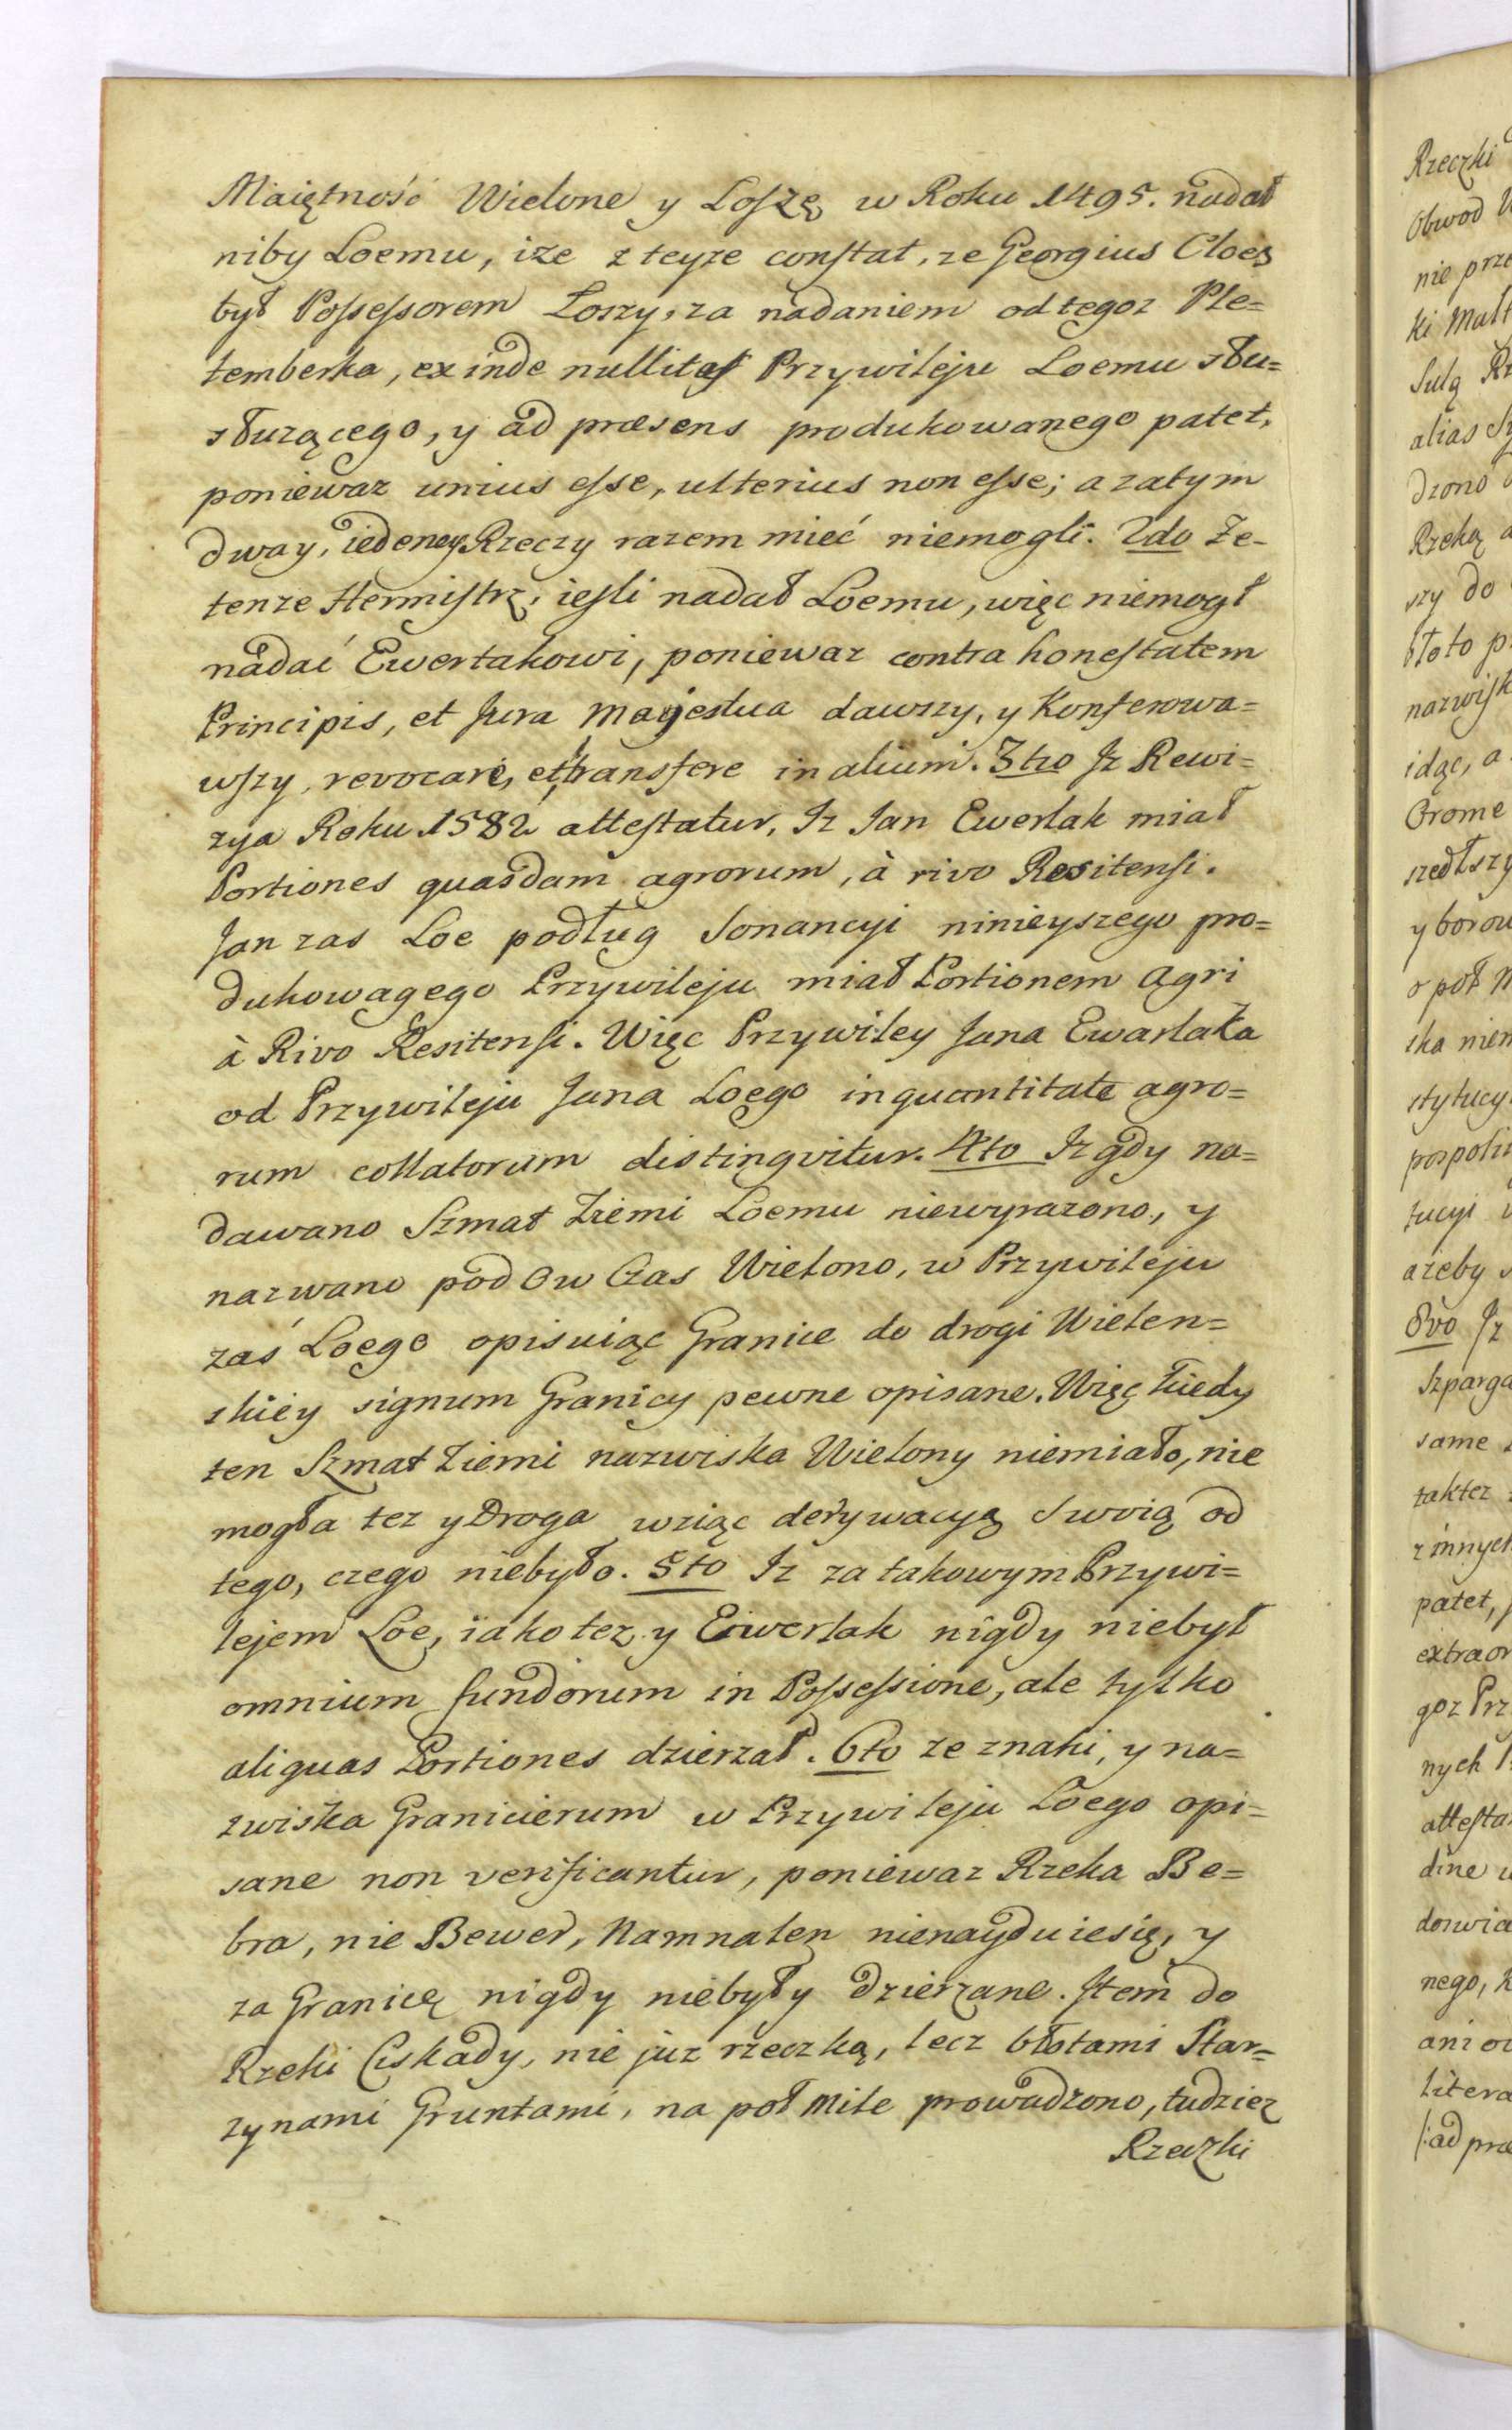 Maiętność Wielone y Loszę w Roku 1495. nadał
niby Loemu, iże z teyze constat, ze Georgius Cloes
był Possessorem Loszy, za nadaniem od tegoz Ple=
temberka, ex inde nullitas Przywileju Loemu słu=
służącego, y ad præsens produkowanego patet,
poniewaz unius esse, ulterius non esse; a zatym
dway, iedeney Rzeczy razem mieć niemogli. 2do Ze-
tenze Hermistrz, iesli nadał Loemu, więc niemogł
nadać Ewertakowi, poniewaz contra honestatem
Principis, et Jura Majestua dawszy, y Konferowa=
wszy, revocare, et transfere in alium. 3tio Jz Rewi=
zya Roku 1582 attestatur, Iz Jan Ewerlak miał
Portiones quasdam agrorum, à rivo Resitensi.
Jan zas Loe podług Sonancyi ninieyszego pro=
dukowagego Przywileju miał Portionem agri
à Rivo Resitensi. Więc Przywiley Jana Ewarlaka
od Przywileju Jana Loego in quantitate agro=
rum collatorum distingvitur. 4to Iz gdy na=
dawano Szmat Ziemi Loemu niewyrazono, y
nazwano pod Ow Czas Wielono, w Przywileju
zaś Loego opisuiąc Granice do drogi Wielen=
skiey signum Granicy pewne opisane. Więc kiedy
ten Szmat Ziemi nazwiska Wielony niemiało, nie
mogła tez y Droga wziąc derywacyą Swoią od
tego, czego niebyło. 5to Iz za takowym Przywi=
lejem Loe, iako tez y Eiwerlak nigdy niebył
omnium fundorum in Possessione, ale tylko
aliquas Portiones dzierzał. 6to ze znaki, y na=
zwiska Granicierum w Przywileju Loego opi=
sane non verificantur, poniewaz Rzeka Be=
bra, nie Bewer, Namnalen nienayduiesię, y
za Granicę nigdy niebyły dzierzane. Item do
Rzeki Ciskady, nie juz rzeczką, lecz błotami Star=
zynami Gruntami, na poł mile prowadzono, tudziez
Rzeczki
Rzeczki
Obwod
nie prze
ki
Sulą
alias
dzono
Rzeką
szy do
błoto
nazwisk
idąc, a
Grome
szedłszy
y borow
o poł
ska niem
stytucy
pospolit
tucyi
azeby
8vo Jz
Szparga
same
taktez
z innych
patet,
extraor
goz Prz
nych
attesta
dine
doswia
nego,
ani
litera
/:ad præ